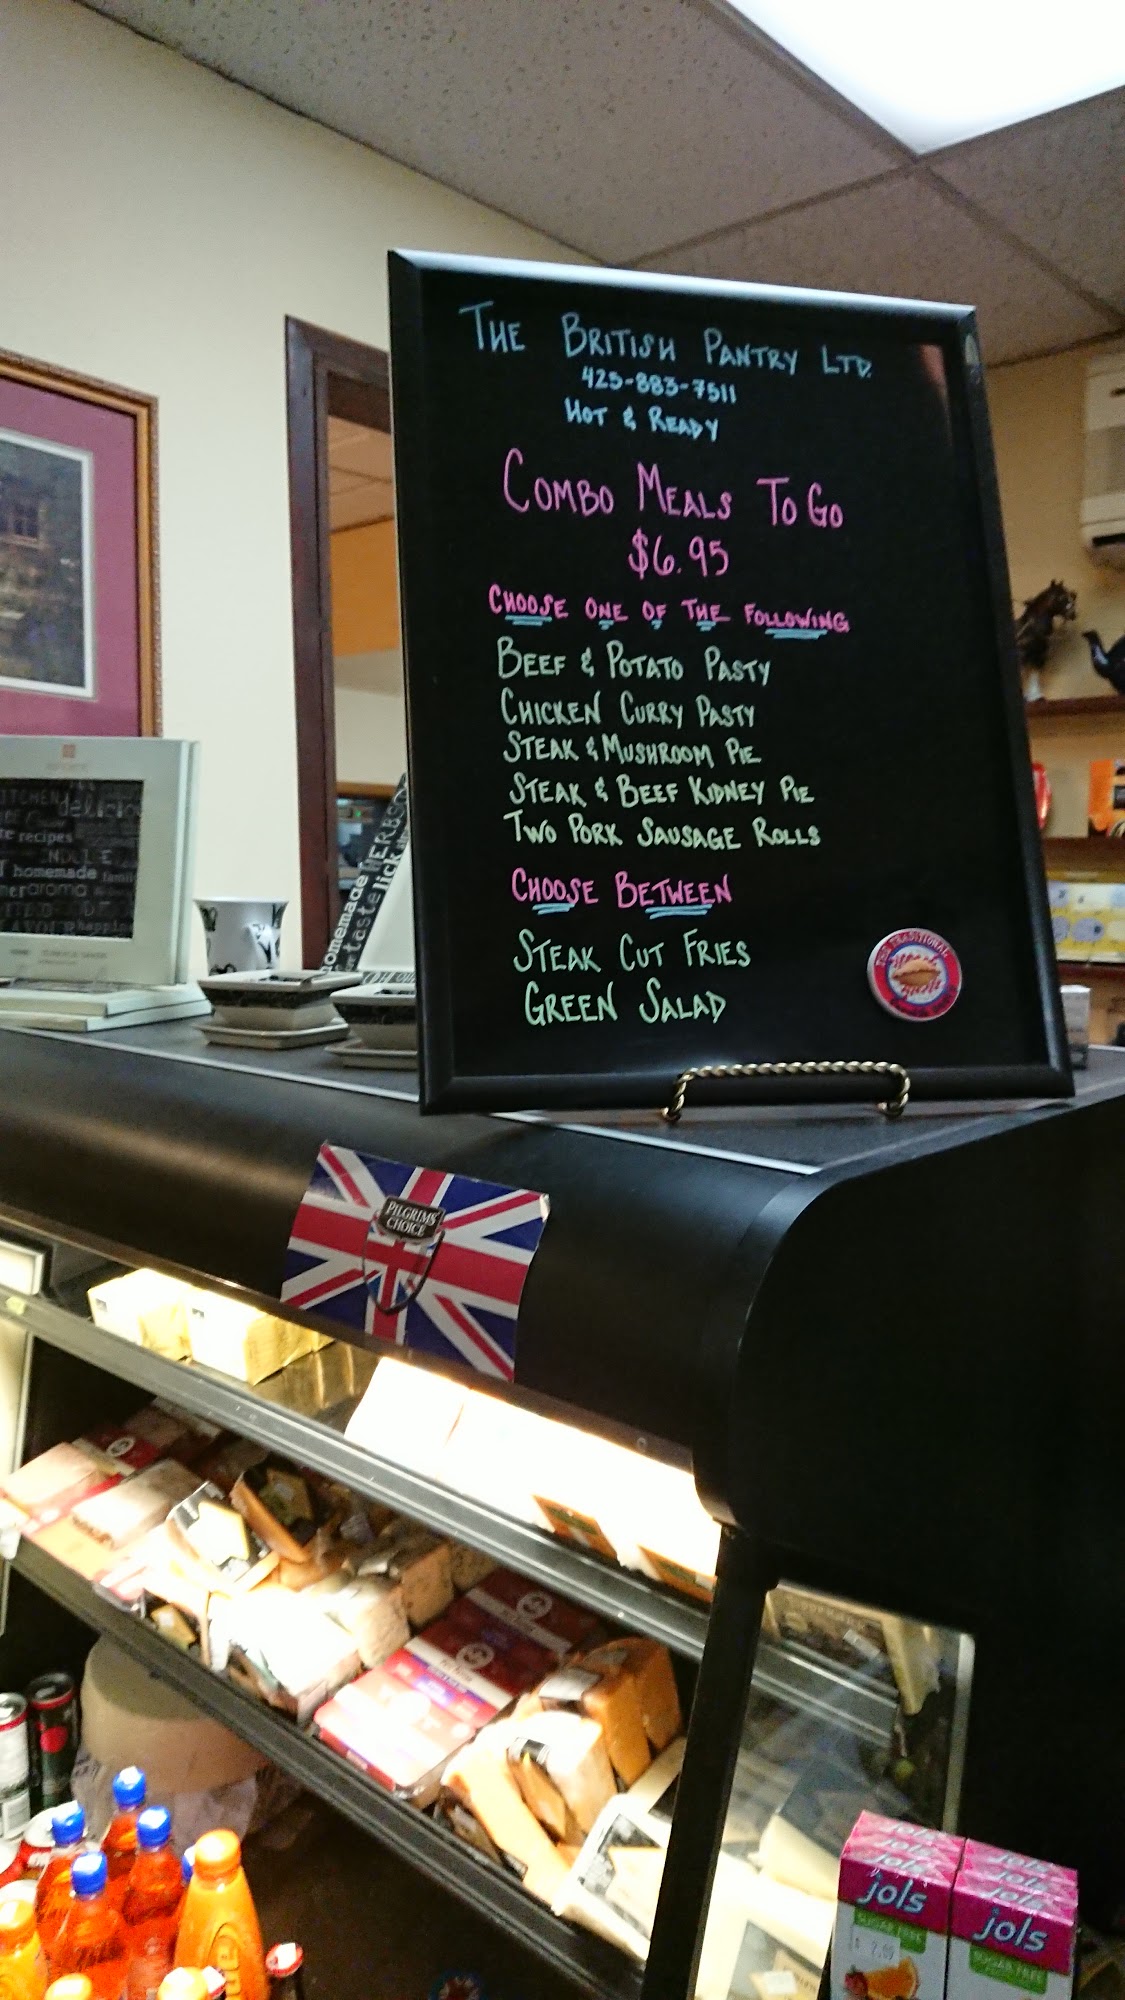 THE BRITISH PANTRY LTD.
425-883-7511
HOT & READY
COMBO MEALS TO GO
$6.95
CHOOSE ONE OF THE FOLLOWING
BEEF & POTATO PASTY
CHICKEN CURRY PASTY
STEAK & MUSHROOM PIE
STEAK & BEEF KIDNEY PIE
TWO PORK SAUSAGE ROLLS
CHOOSE BETWEEN
STEAK CUT FRIES
GREEN SALAD
THE TRADITIONAL
delicio
recipes
homemade famil
aroma
homemade HERBS
taste lick
PILGRIMS
CHOICE
jols
SUGAR FREE
jols
SUGAR FREE